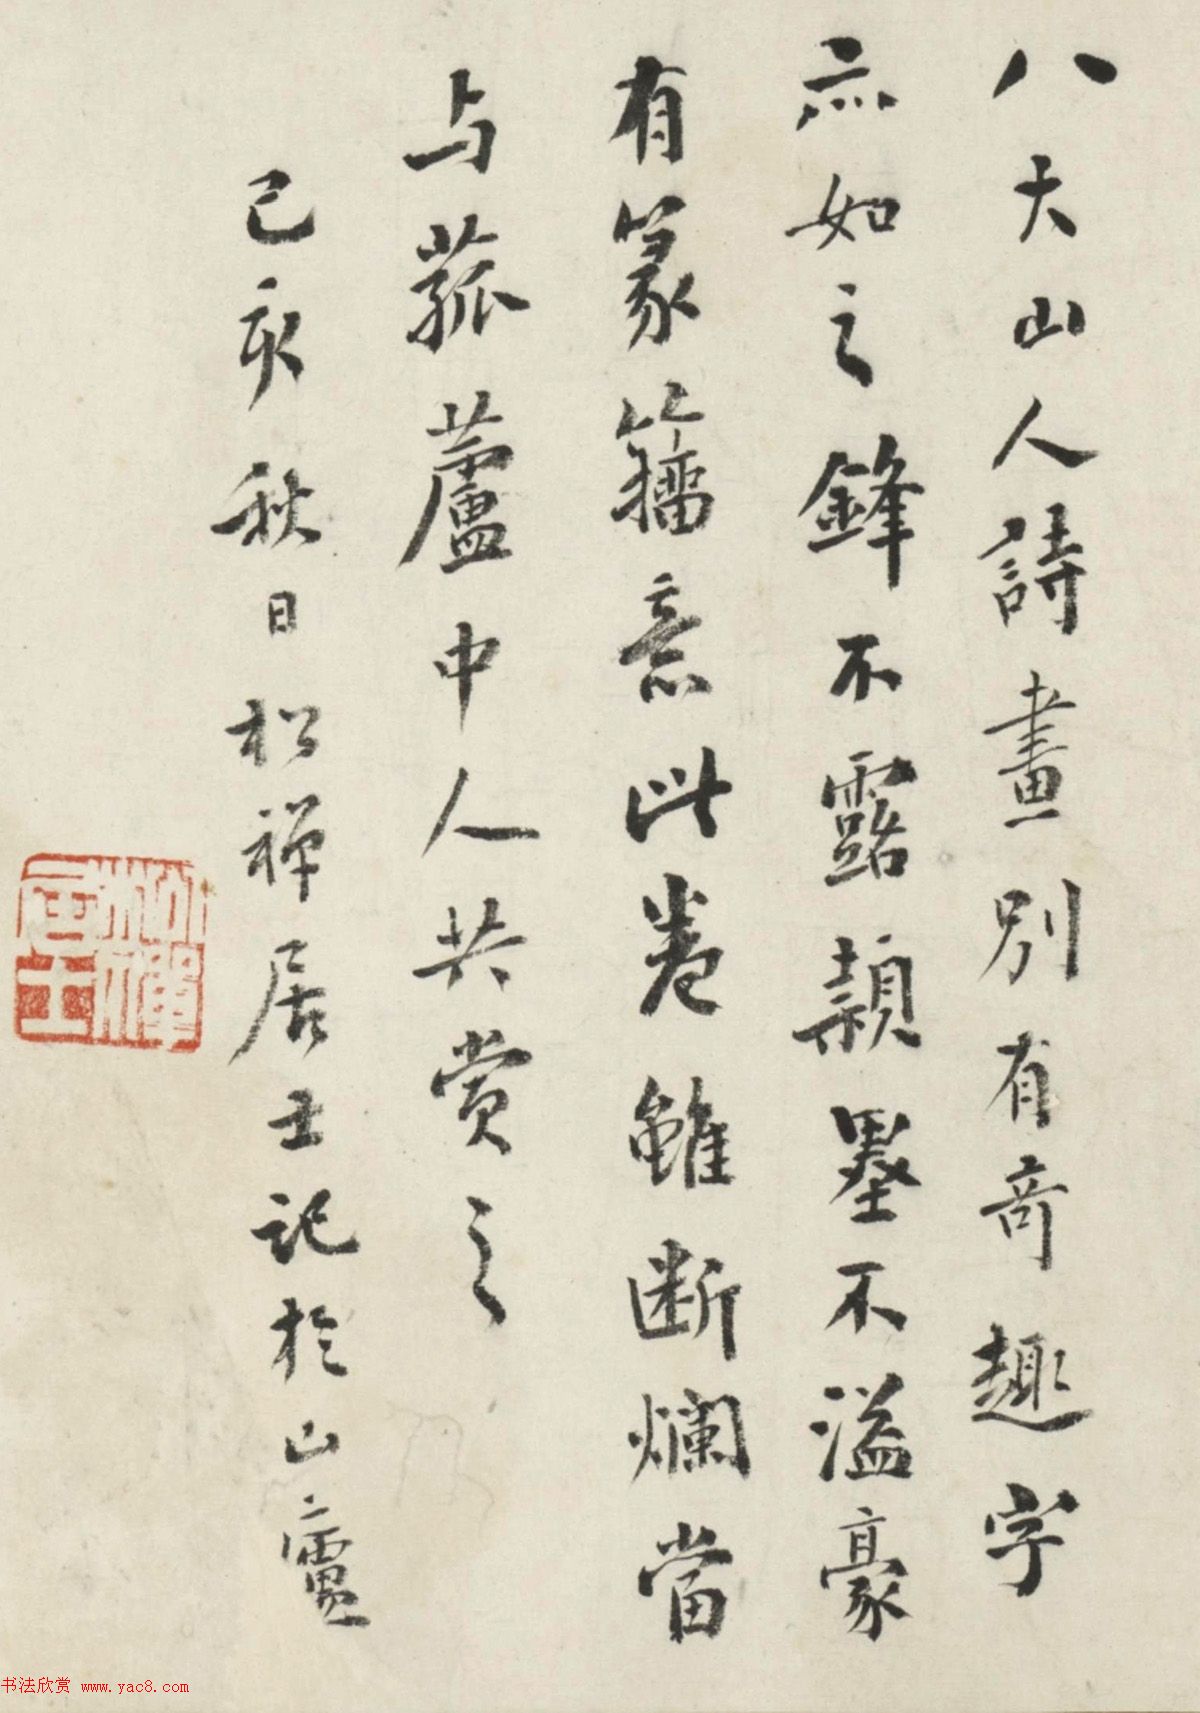 八大山人詩畫別有奇趣字
亦如之鋒不露穎墨不溢豪
有篆籀意此卷雖断爛當
与菰蘆中人共賞之
己亥秋日松禪居士記於山廬
松禪居士
书法欣赏 www.yac8.com